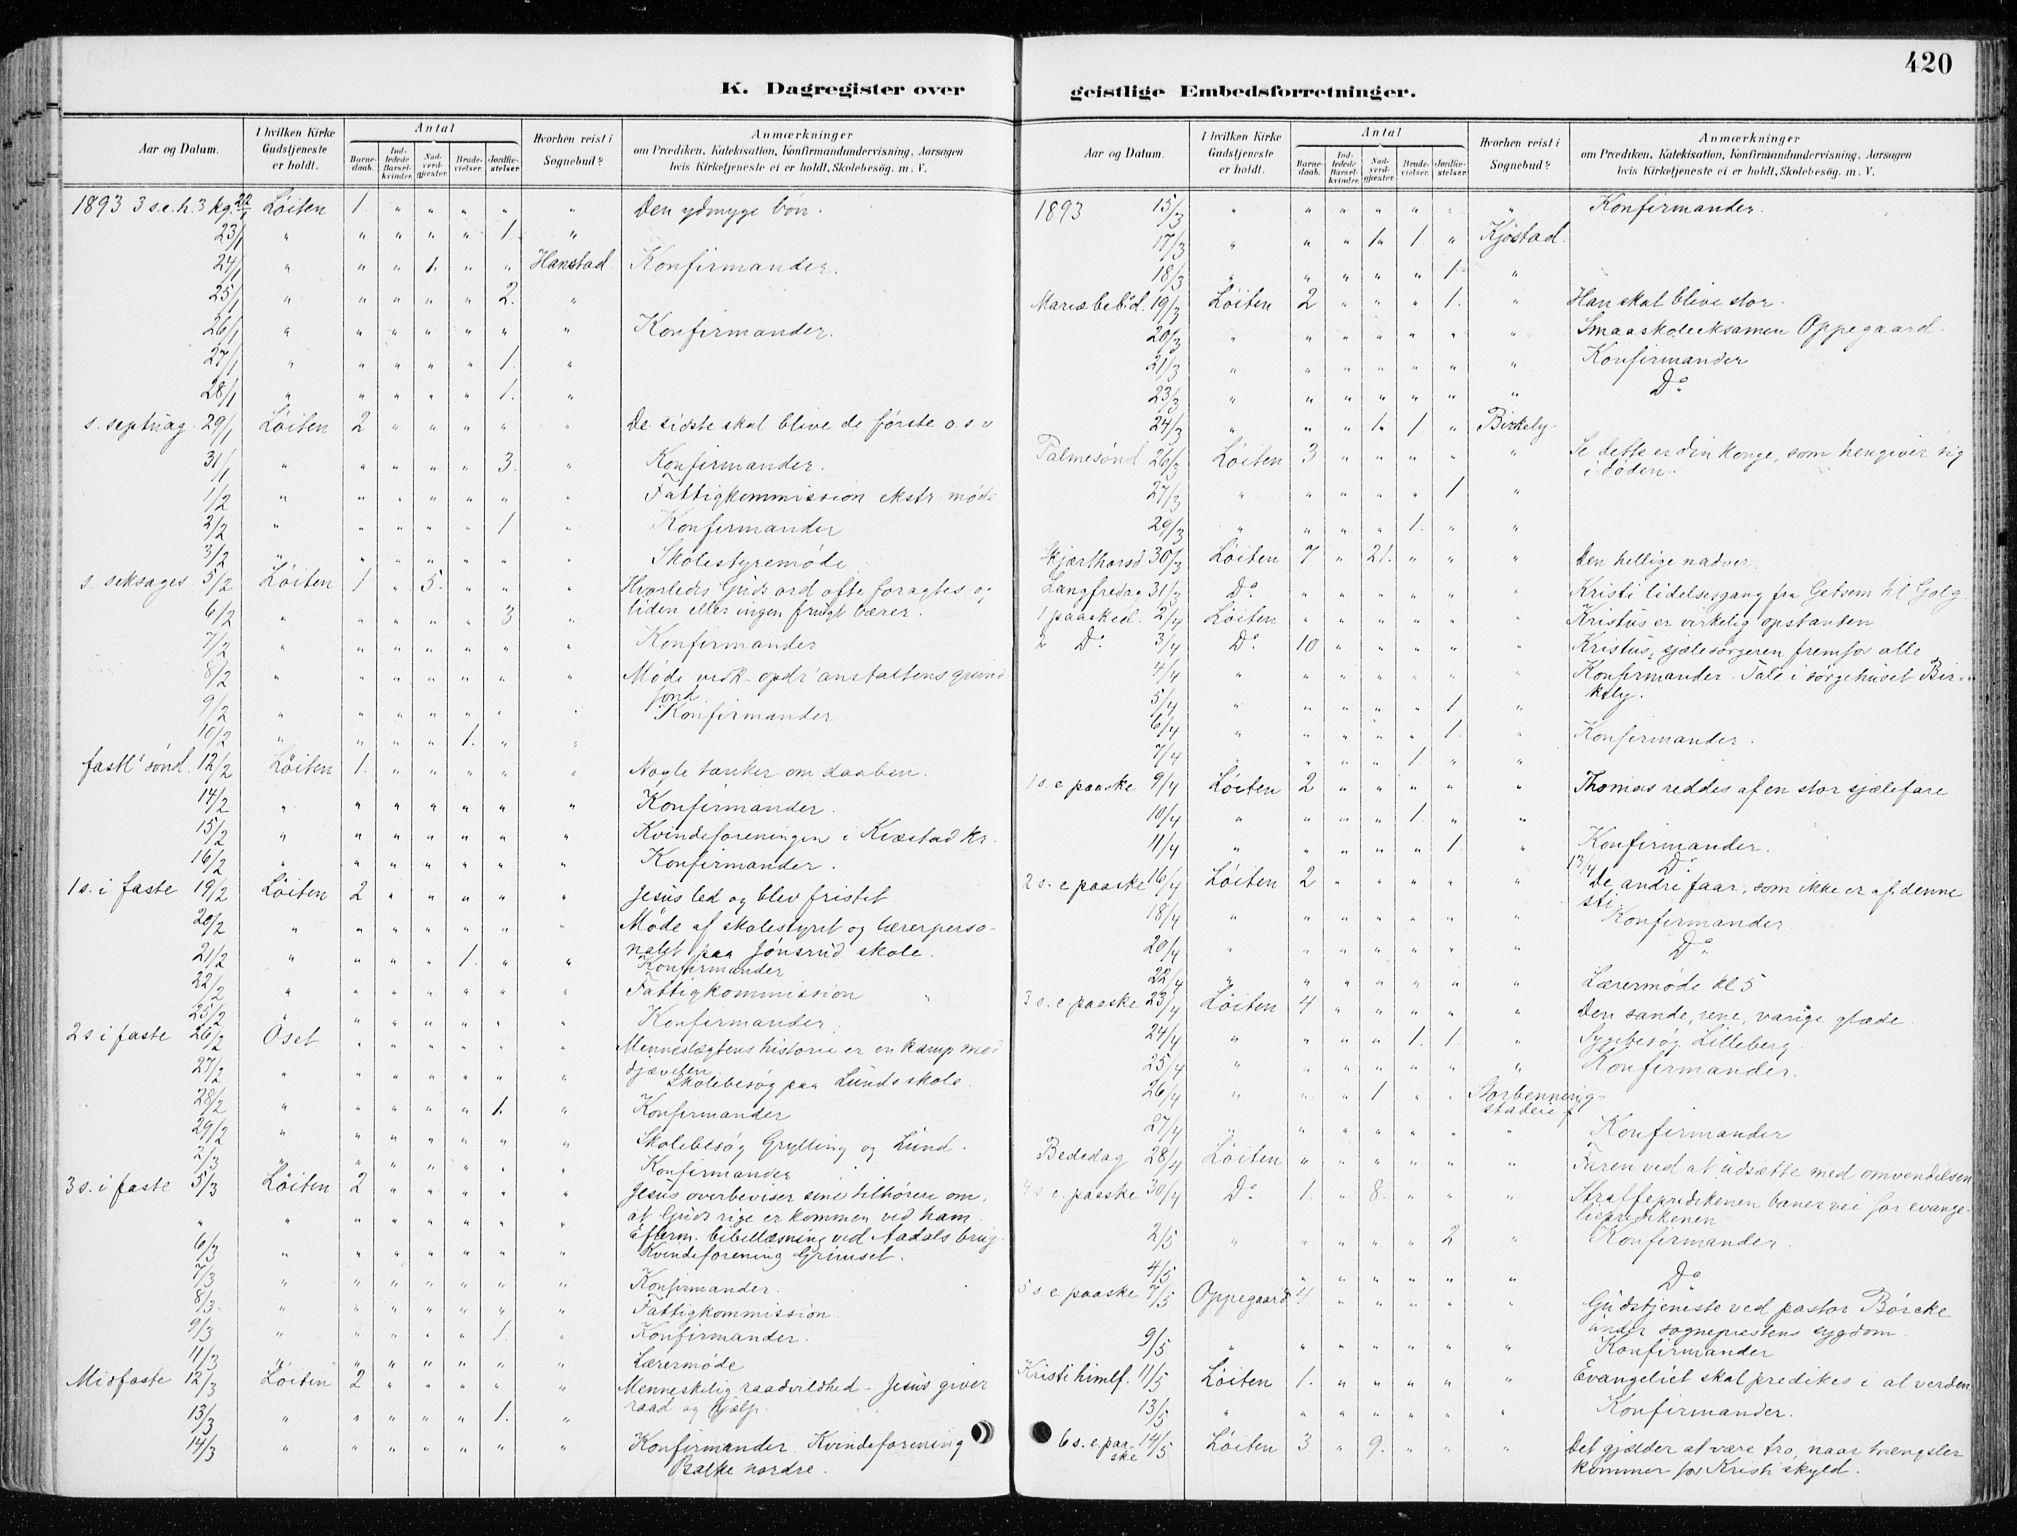 420
K. Dagregister over
Aar og Datum. I hvilken Kirke Gudstjeneste er holdt. Antal Barnedaab. Indledede Barselkvinder. Nadverdgjester. Brudevielser. Jordfæstelser. Hvorhen reist i Sognebud? Anmærkninger om Prædiken, Katekisation, Konfirmandundervisning, Aarsagen hvis Kirketjeneste ei er holdt, Skolebesøg. m. V.
1893 3 s.e.h.3 kg. 22/1 Løiten 1. " " " " " Den ydmyge bøn.
23/1 " " " " " 1. "
24/1 " " " 1. " " Hanstad Konfirmander.
25/1 " " " " " 2. "
26/1 " " " " " " " Konfirmander.
27/1 " " " " " 1. "
28/1 " " " " " 1. "
s. septuag. 29/1 Løiten 2 " " " " " De sidste skal blive de første o.s.v
31/1 " " " " " 3. " Konfirmander.
1/2 " " " " " " " Fattigkommission ekstr. møde
2/2 " " " " " 1 " Konfirmander
3/2 " " " " " " " Skolestyremøde.
s. seksages 5/2 Løiten 1 " 5. " " " Hvorledes Guds ord ofte foragtes og
6/2 " " " " " 3 " liden eller ingen frugt bærer.
7/2 " " " " " " " Konfirmander
8/2 " " " " " " " Møde vedk. opdr anstaltens grund
fond
9/2 " " " " " " " Konfirmander
10/2 " " " " 1. " "
fastl' sønd. 12/2 Løiten 1. " " " " " Nogle tanker om daaben.
14/2 " " " " " " " Konfirmander.
15/2 " " " " " " " Kvindeforeningen i Kvæstad kr.
16/2 " " " " " " " Konfirmander.
1 s. i faste 19/2 Løiten 2 " " " " " Jesus led og blev fristet
20/2 " " " " " " " Møde af skolestyret og lærerperso-
natet paa Jønsrud skole.
21/2 " " " " 1. " " Konfirmander
22/2 " " " " " " " Fattigkommission "
25/2 " " " " " " " Konfirmander
2 s i faste 26/2 Oset " " " " " " Menneslægtens historie er en kamp mod
djævelen
27/2 " " " " " " " Skolebesøg paa Lunds skole.
28/2 " " " " " 1. " Konfirmander
29/2 " " " " " " " Skolebesøg Grylling og Lund.
2/3 " " " " " " " Konfirmander
3 s. i faste 5/3 Løiten 2 " " " " " Jesus overbeviser sine tilhørere om,
" " " " " " " " at Guds rige er kommen ved ham.
Efterm. bibellæsning ved Aadals brug.
6/3 " " " " " " " Kvindeforening Grimset.
7/3 " " " " " " " Konfirmander.
8/3 " " " " " " " Fattigkommission.
9/3 " " " " " 1. " Konfirmander.
11/3 " " " " " " " Lærermøde
Midfaste 12/3 Løiten 2 " " " " " Menneskelig raadvildhed – Jesus giver
raad og hjælp.
13/3 " " " " " 1. "
14/3 " " " " " " " Konfirmander. Kvindeforening
Balke nordre.
geistlige Embedsforretninger.
Aar og Datum. I hvilken Kirke Gudstjeneste er holdt. Antal Barnedaab. Indledede Barselkvinder. Nadverdgjester. Brudevielser. Jordfæstelser. Hvorhen reist i Sognebud? Anmærkninger om Prædiken, Katekisation, Konfirmandundervisning, Aarsagen hvis Kirketjeneste ei er holdt, Skolebesøg. m. V.
1893 15/3 " " " " " " " Konfirmander.
17/3 " " " 1. 1. " Kjøstad.
18/3 " " " " " 1. "
Mariæ bebud. 19/3 Løiten 2 " " " 1. " Han skal blive stor.
20/3 " " " " " " " Smaaskoleeksamen Oppegaard.
21/3 " " " " " " " Konfirmander
23/3 " " " " " " " Do
24/3 " " " 1. 1. " Birkely.
Palmesønd 26/3 Løiten 3 " " " " " Se dette er din konge, som hengiver sig
i døden.
27/3 " " " " " 1 "
29/3 " " " " 1. " "
Skjærthorsd. 30/3 Løiten 7 " 21. " " " Den hellige nadver.
Langfredag 31/3 Do " " " " " " Kristi lidelsesgang fra Getsem til Golg.
1 paasked. 2/4 Løiten " " " " " " Kristus er virkelig opstanden.
2 Do 3/4 Do 10 " " " " " Kristus, sjælesørgeren fremfor alle
4/4 " " " " " " " Konfirmander. Tale i sørgehuset Bir-
kely.
5/4 " " " " " 1 "
6/4 " " " " " 1. " Konfirmander.
7/4 " " " " 1. " "
1 s. e paaske 9/4 Løiten 2 " " " " " Thomas reddes af en stor sjælefare
10/4 " " " " 1. " "
11/4 " " " " " 1. " Konfirmander.
13/4 Do
2 s. e paaske 16/4 Løiten 2 " " " " " De andre faar, som ikke er af denne
sti.
18/4 " " " " " " " Konfirmander.
20/4 " " " " " " " Do
22/4 " " " " " " " Lærermøde kl 5
3 s. e paaske 23/4 Løiten 4 " " " " " Den sande, rene, varige glæde.
24/4 " " " " 1. 1. " Sygebesøg Lilleberg.
25/4 " " " " " " " Konfirmander.
26/4 " " " 1 " "
27/4 " " " " " " " Konfirmander
Bededag 28/4 Løiten " " " " " " Faren ved at udsætte med omvendelsen
4 s e. paaske 30/4 Do 1. " 8. " " " Straffeprædikenen baner vei for evange-
lieprædikenen
2/5 " " " " " 2 " Konfirmander.
4/5 " " " " " " " Do
5 s e paaske 7/5 Oppegaard 4. " " " " " Gudstjeneste ved pastor Børcke
under sogneprestens sygdom.
9/5 " " " " " " " Konfirmander
Kristi himlf. 11/5 Løiten 1. " " " " " Evangeliet skal predikes i al verden
13/5 " " " " " " " Konfirmander.
6 s. e paa-
ske 14/5 Løiten 3 " 9. " " " Det gjælder at være tro, naar trængsler
kommer for Kristi skyld.